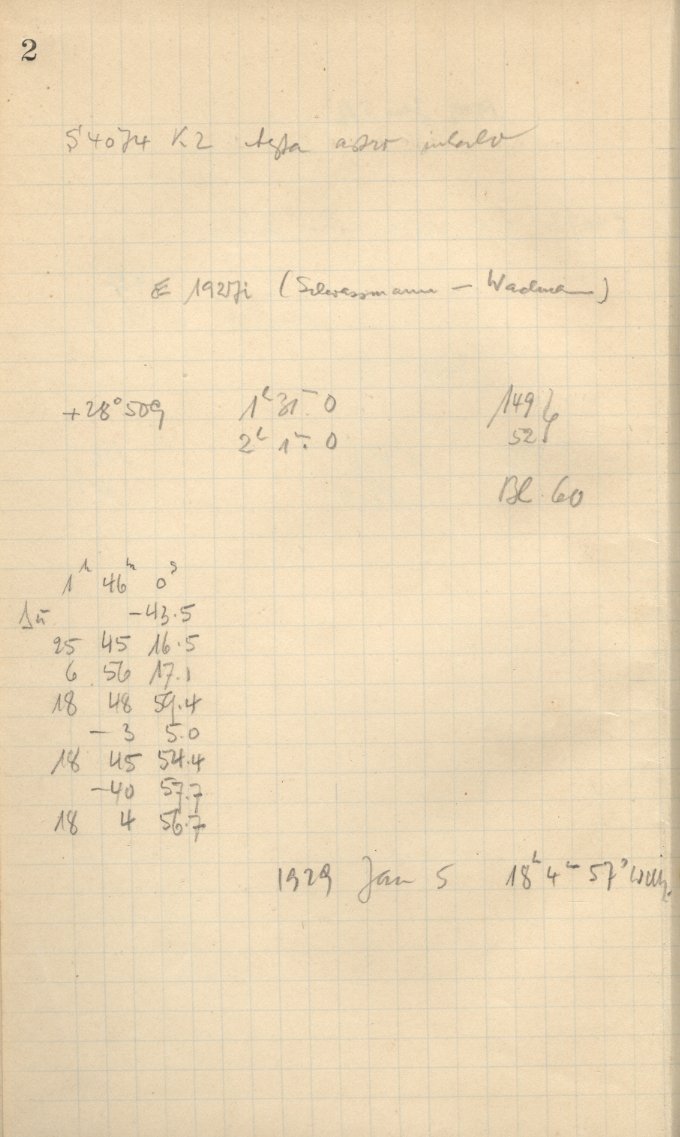 2
S 4074 K2 Agfa astro
1927i (Schwassmann — Wachmann)
+28° 509 1ʰ 31ᵐ.0 149
2ʰ 1ᵐ.0 52
Bl. 60
1ʰ 46ᵐ 0ˢ
Δu -43.5
25 45 16.5
6 56 17.1
18 48 59.4
-3 5.0
18 45 54.4
-40 57.7
18 4 56.7
1929 Jan 5 18ʰ 4ᵐ 57ˢ